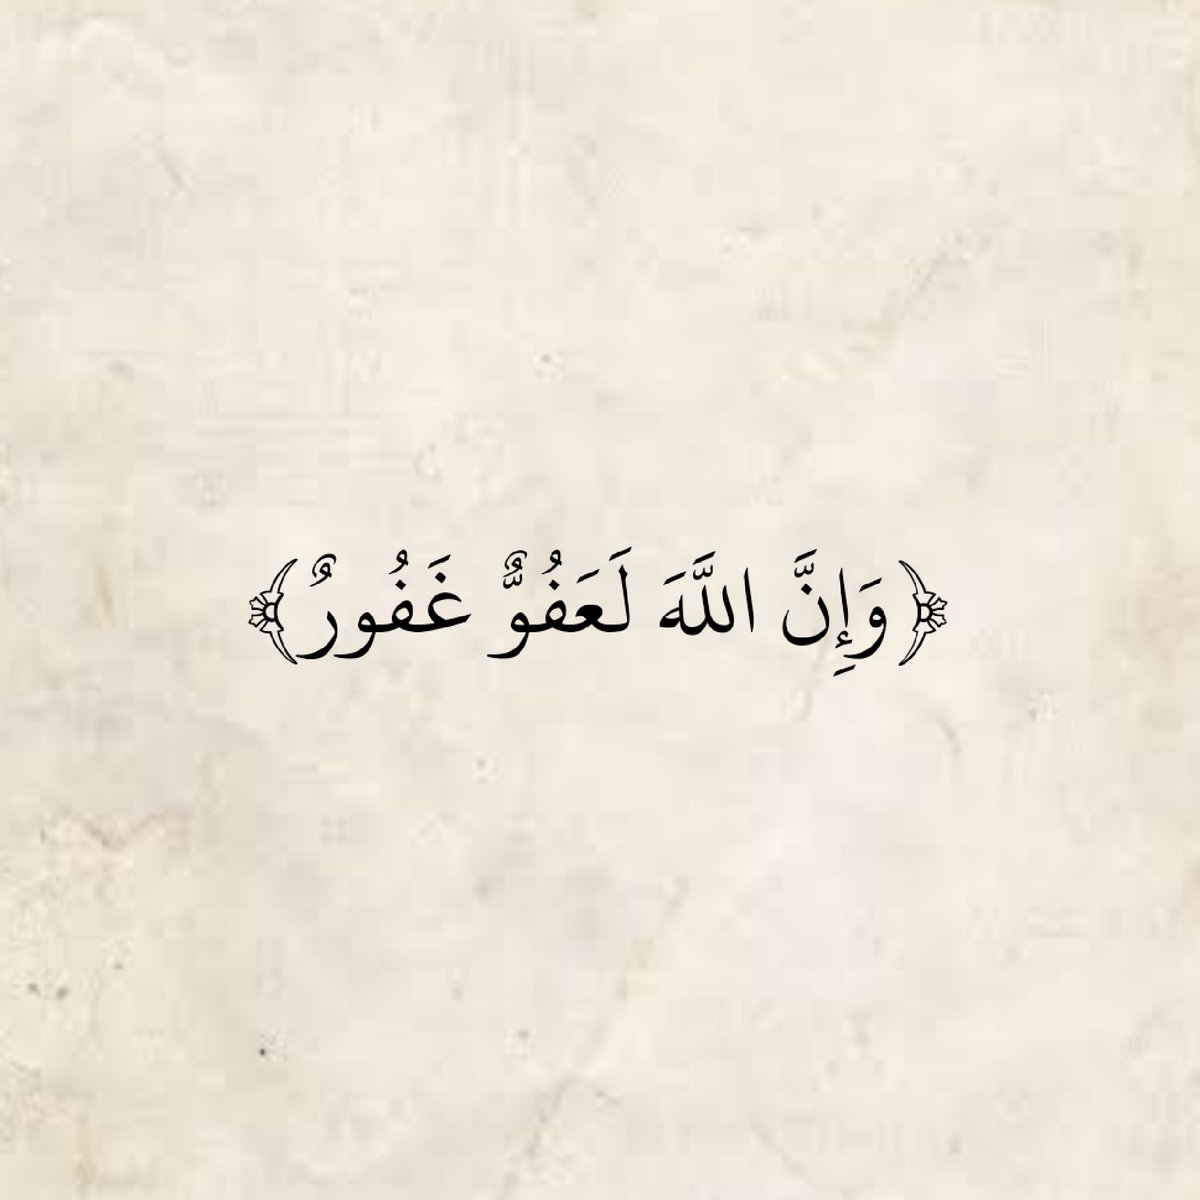 ﴿وَإِنَّ اللَّهَ لَعَفُوٌّ غَفُورٌ﴾